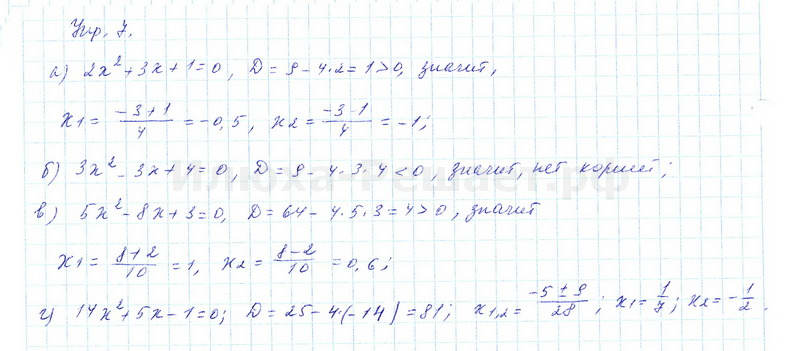 Упр. 7.
а) 2x²+3x+1=0, D=9-4·2=1>0, значит,
x1 = (-3+1)/4 = -0,5, x2 = (-3-1)/4 = -1;
б) 3x²-3x+4=0, D=9-4·3·4<0, значит, нет корней;
Илюха-Решает.рф
в) 5x²-8x+3=0, D=64-4·5·3=4>0, значит
x1 = (8+2)/10 = 1, x2 = (8-2)/10 = 0,6;
г) 14x²+5x-1=0; D=25-4·(-14)=81; x1,2 = (-5±9)/28; x1=1/7; x2=-1/2.